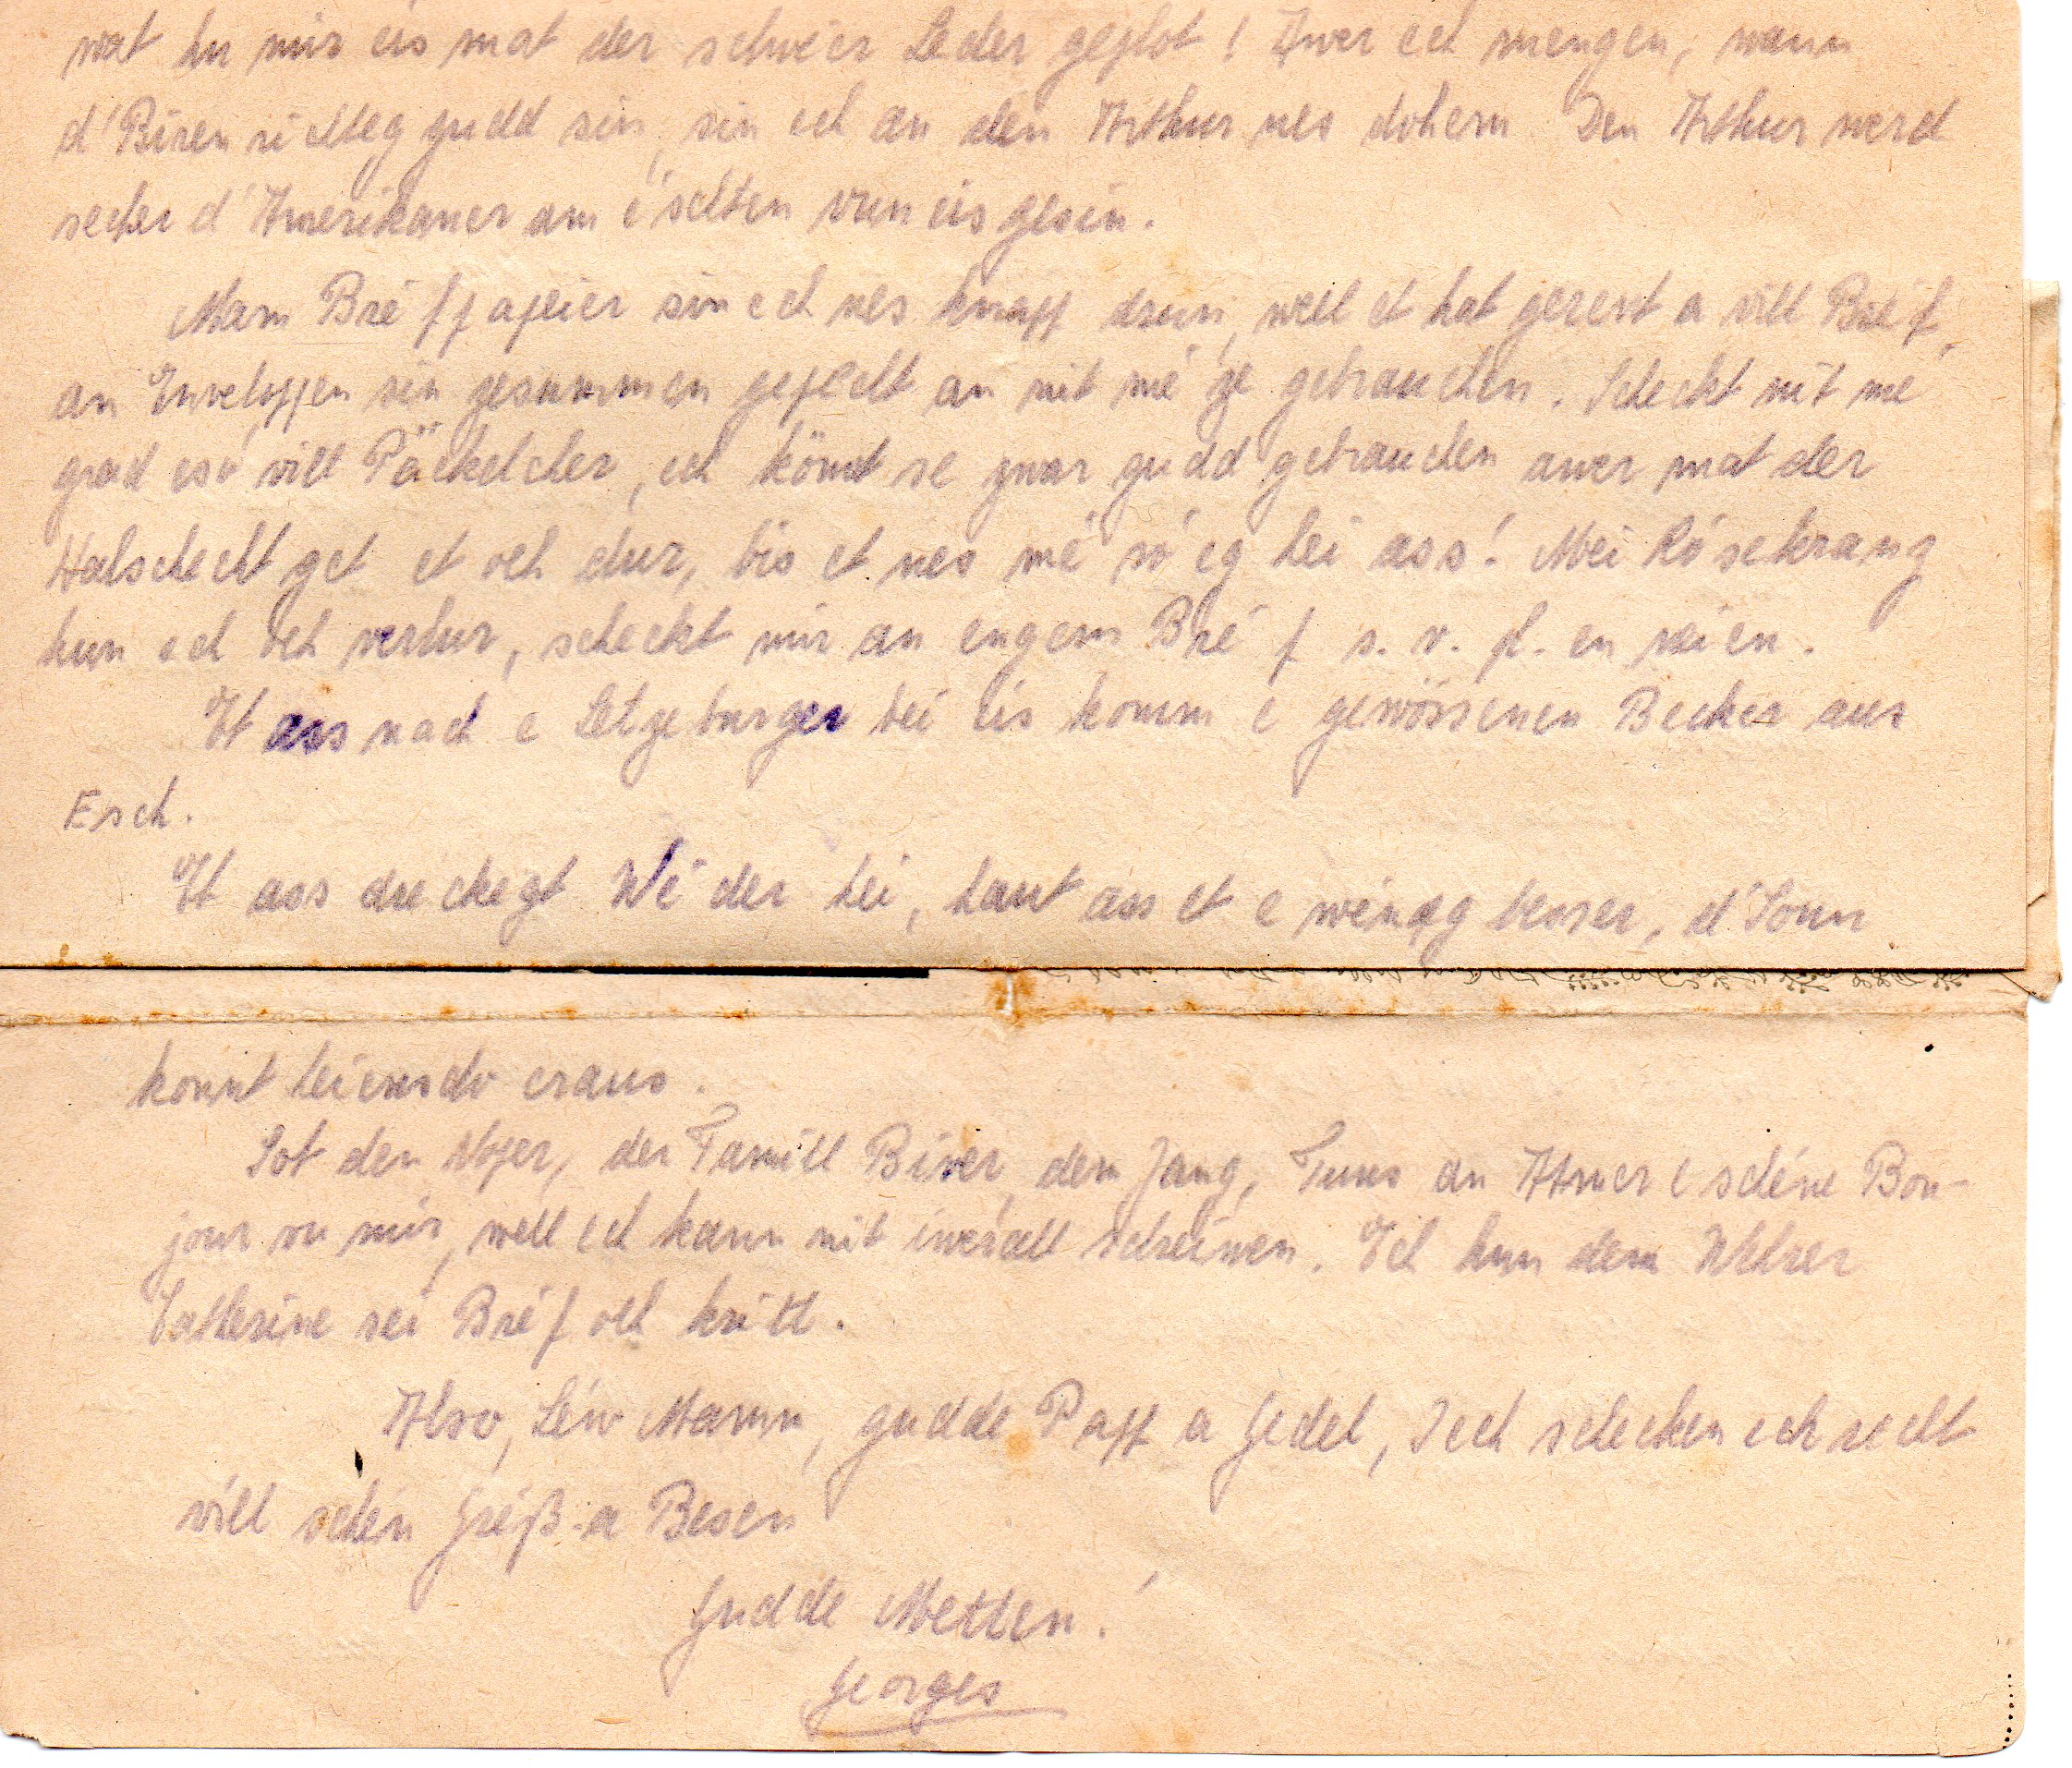 wat hu mir eis mat der schwéer Leder geplot! Awer ech mengen, wann
d'Biren richteg gudd sin, sin ech an den Arthur nes dohem Den Arthur werd
secher d'Amerikaner am éischten vun eis gesin.
Mam Bréfpapeier sin ech nes knapp drun, well et hat gerent a vill Bréf,
an Enveloppen sin zesummen gepecht an nit mé ze gebrauchen. Scheckt nit me
grad esó vill Päckelcher, ech könnt se zwar gudd gebrauchen awer mat der
Halschecht get et och dur, bis et nes mé róeg hei ass! Mei Rósekranz
hun ech och verlur, scheckt mir an engem Bréf s. v. pl. en neien.
Et ass nach e Letzeburger bei eis komm e gewössenen Becker aus
Esch.
Et ass dreckegt Wéder hei, haut ass et e wéneg besser, d'Sonn
kommt heiensdo eraus.
Sot den Noper, der Famill Biver, dem Jang, Tunn an Ttmer e schéne Bon-
jour vu mir, well ech kann nit iwerall schreiwen. Ech hun dem
Catherine sei Bréf och kritt.
Also, Léw Mamm, gudde Papp a Gedel, Iech schecken ech recht
vill schén Gréß a Besen
Gudde Metten!
Georges